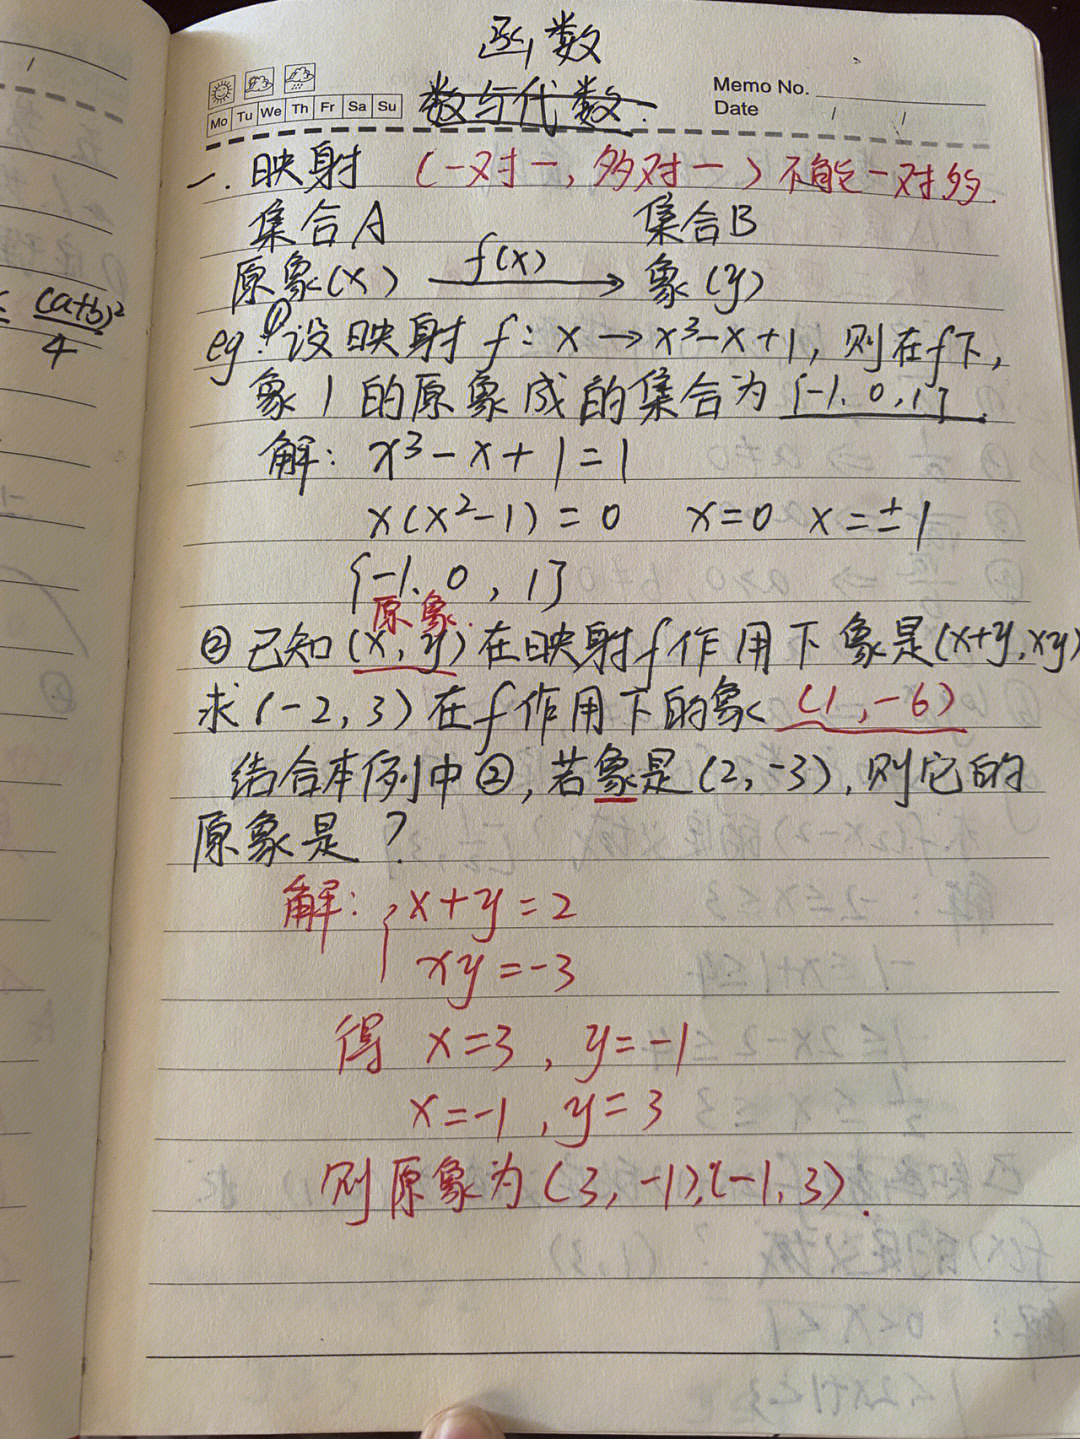 函数
数与代数.
Memo No.
Date / /
Mo Tu We Th Fr Sa Su
一. 映射 (一对一, 多对一) 不能一对多.
集合A 集合B
原象(x) f(x) → 象(y)
eg: ①设映射 f: x→x³-x+1, 则在f下,
象1的原象成的集合为{-1, 0, 1}.
解: x³-x+1=1
x(x²-1)=0 x=0 x=±1
{-1, 0, 1}
原象.
②已知(x, y)在映射f作用下象是(x+y, xy)
求(-2, 3)在f作用下的象 (1, -6)
结合本例中②, 若象是(2, -3), 则它的
原象是?
解: { x+y=2
xy=-3
得 x=3, y=-1
x=-1, y=3
则原象为(3, -1), (-1, 3).
(a+b)²
4